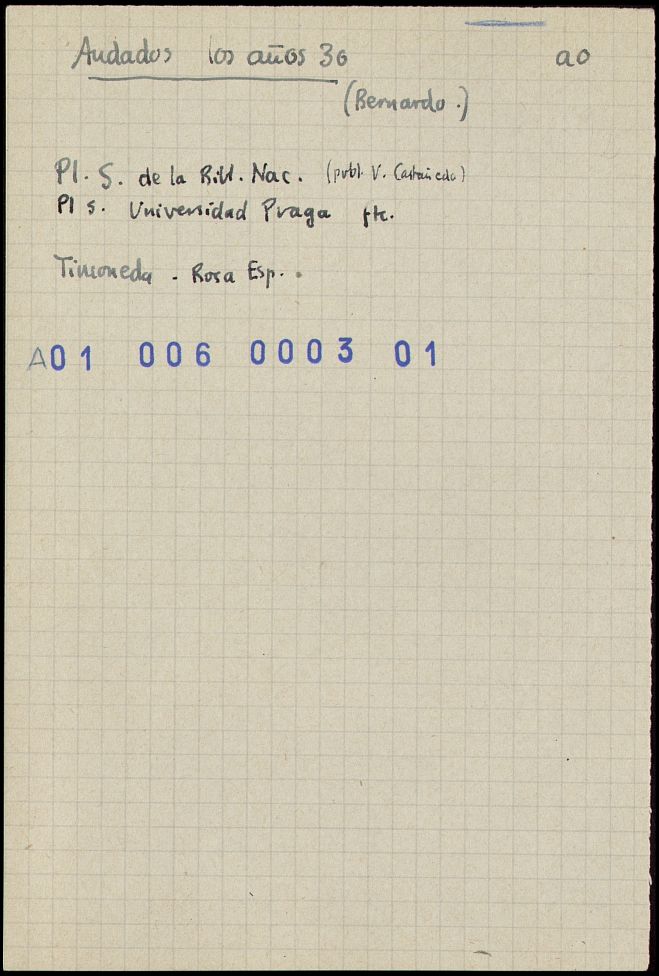 Andados los años 36 ao
(Bernardo.)
Pl. S. de la Bibl. Nac. (publ. V. Castañeda)
Pl s. Universidad Praga
Timoneda - Rosa Esp.
A01 006 0003 01